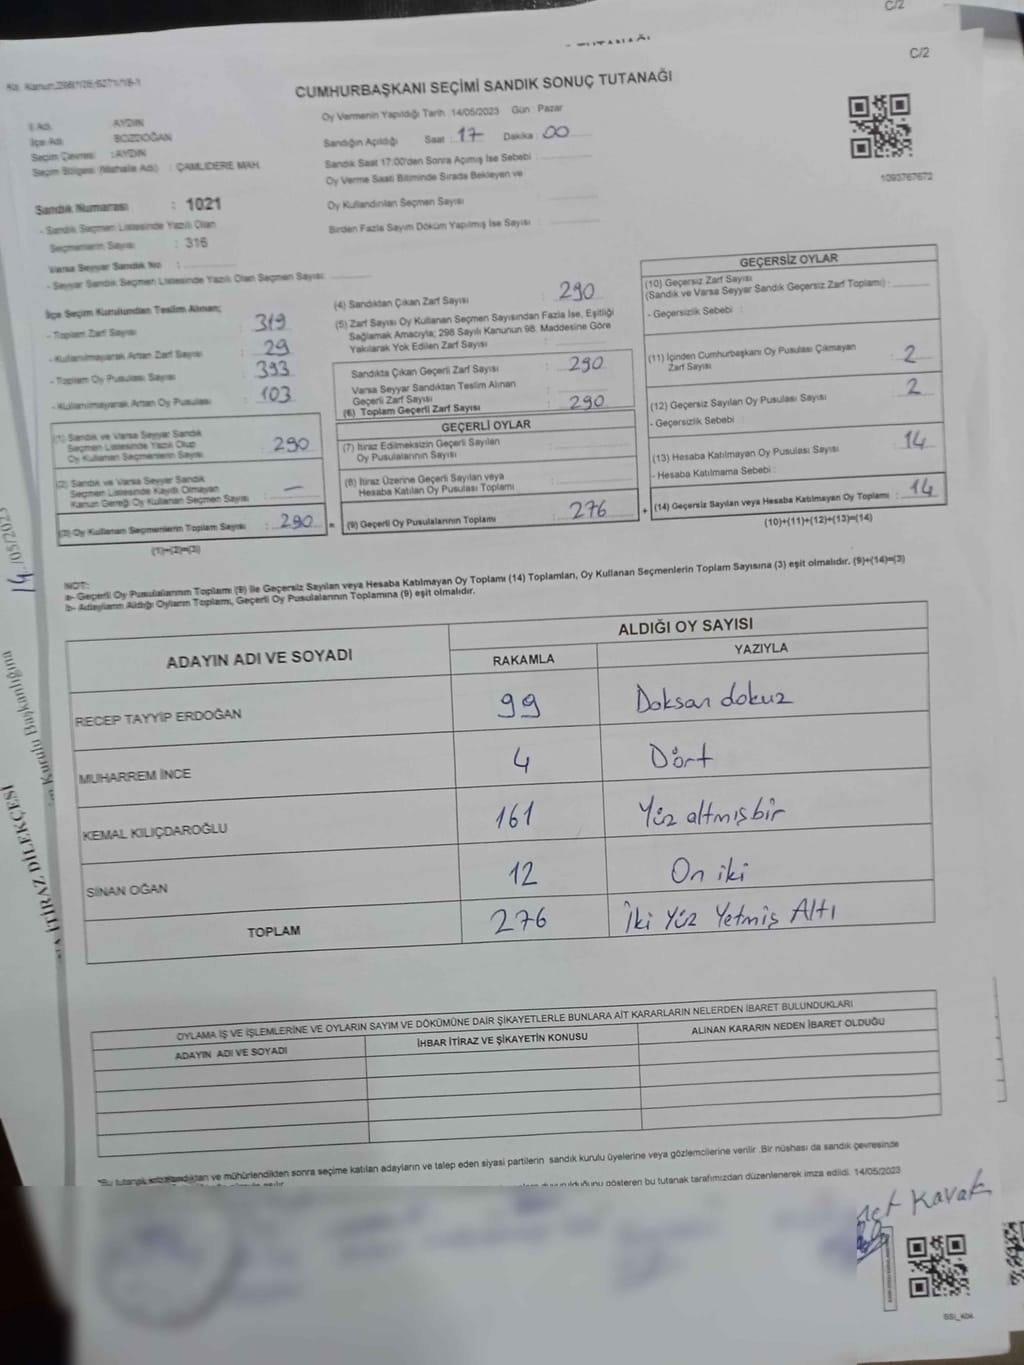 C/2
TUTANAĞI
C/2
CUMHURBAŞKANI SEÇİMİ SANDIK SONUÇ TUTANAĞI
İl Adı : AYDIN
İlçe Adı : BOZDOĞAN
Seçim Çevresi : AYDIN
Seçim Bölgesi (Mahalle Adı) : ÇAMLIDERE MAH.
Sandık Numarası : 1021
- Sandık Seçmen Listesinde Yazılı Olan
Seçmenlerin Sayısı : 316
Varsa Seyyar Sandık No :
- Seyyar Sandık Seçmen Listesinde Yazılı Olan Seçmen Sayısı:
Oy Vermenin Yapıldığı Tarih :14/05/2023 Gün : Pazar
Sandığın Açıldığı Saat : 17 Dakika : 00
Sandık Saat 17:00'den Sonra Açımış İse Sebebi :
Oy Verme Saati Bitiminde Sırada Bekleyen ve
Oy Kullandırılan Seçmen Sayısı
Birden Fazla Sayım Döküm Yapılmış İse Sayısı :
1093767672
İlçe Seçim Kurulundan Teslim Alınan;
- Toplam Zarf Sayısı : 319
- Kullanılmayarak Artan Zarf Sayısı : 29
- Toplam Oy Pusulası Sayısı : 393
- Kullanılmayarak Artan Oy Pusulası : 103
(1) Sandık ve Varsa Seyyar Sandık
Seçmen Listesinde Yazılı Olup
Oy Kullanan Seçmenlerin Sayısı : 290
(2) Sandık ve Varsa Seyyar Sandık
Seçmen Listesinde Kayıtlı Olmayan
Kanun Gereği Oy Kullanan Seçmen Sayısı : —
(3) Oy Kullanan Seçmenlerin Toplam Sayısı : 290 =
(1)+(2)=(3)
(4) Sandıktan Çıkan Zarf Sayısı : 290
(5) Zarf Sayısı Oy Kullanan Seçmen Sayısından Fazla İse, Eşitliği
Sağlamak Amacıyla; 298 Sayılı Kanunun 98. Maddesine Göre
Yakılarak Yok Edilen Zarf Sayısı :
Sandıkta Çıkan Geçerli Zarf Sayısı : 290
Varsa Seyyar Sandıktan Teslim Alınan
Geçerli Zarf Sayısı :
(6) Toplam Geçerli Zarf Sayısı : 290
GEÇERLİ OYLAR
(7) İtiraz Edilmeksizin Geçerli Sayılan
Oy Pusulalarının Sayısı :
(8) İtiraz Üzerine Geçerli Sayılan veya
Hesaba Katılan Oy Pusulası Toplamı :
(9) Geçerli Oy Pusulalarının Toplamı : 276 +
GEÇERSİZ OYLAR
(10) Geçersiz Zarf Sayısı
(Sandık ve Varsa Seyyar Sandık Geçersiz Zarf Toplamı) :
- Geçersizlik Sebebi :
(11) İçinden Cumhurbaşkanı Oy Pusulası Çıkmayan
Zarf Sayısı : 2
(12) Geçersiz Sayılan Oy Pusulası Sayısı : 2
- Geçersizlik Sebebi :
(13) Hesaba Katılmayan Oy Pusulası Sayısı : 14
- Hesaba Katılmama Sebebi :
(14) Geçersiz Sayılan veya Hesaba Katılmayan Oy Toplamı : 14
(10)+(11)+(12)+(13)=(14)
NOT:
a- Geçerli Oy Pusulalarının Toplamı (9) ile Geçersiz Sayılan veya Hesaba Katılmayan Oy Toplamı (14) Toplamları, Oy Kullanan Seçmenlerin Toplam Sayısına (3) eşit olmalıdır. (9)+(14)=(3)
b- Adayların Aldığı Oyların Toplamı, Geçerli Oy Pusulalarının Toplamına (9) eşit olmalıdır.
ADAYIN ADI VE SOYADI
ALDIĞI OY SAYISI
RAKAMLA YAZIYLA
RECEP TAYYİP ERDOĞAN 99 Doksan dokuz
MUHARREM İNCE 4 Dört
KEMAL KILIÇDAROĞLU 161 Yüz altmışbir
SİNAN OĞAN 12 On iki
TOPLAM 276 İki Yüz Yetmiş Altı
OYLAMA İŞ VE İŞLEMLERİNE VE OYLARIN SAYIM VE DÖKÜMÜNE DAİR ŞİKAYETLERLE BUNLARA AİT KARARLARIN NELERDEN İBARET BULUNDUKLARI
ADAYIN ADI VE SOYADI İHBAR İTİRAZ VE ŞİKAYETİN KONUSU ALINAN KARARIN NEDEN İBARET OLDUĞU
ve mühürlendikten sonra seçime katılan adayların ve talep eden siyasi partilerin sandık kurulu üyelerine veya gözlemcilerine verilir .Bir nüshası da sandık çevresinde
gösteren bu tutanak tarafımızdan düzenlenerek imza edildi. 14/05/2023
Kavak
14/05/2023
Kurulu Başkanlığının
İTİRAZ DİLEKÇESİ